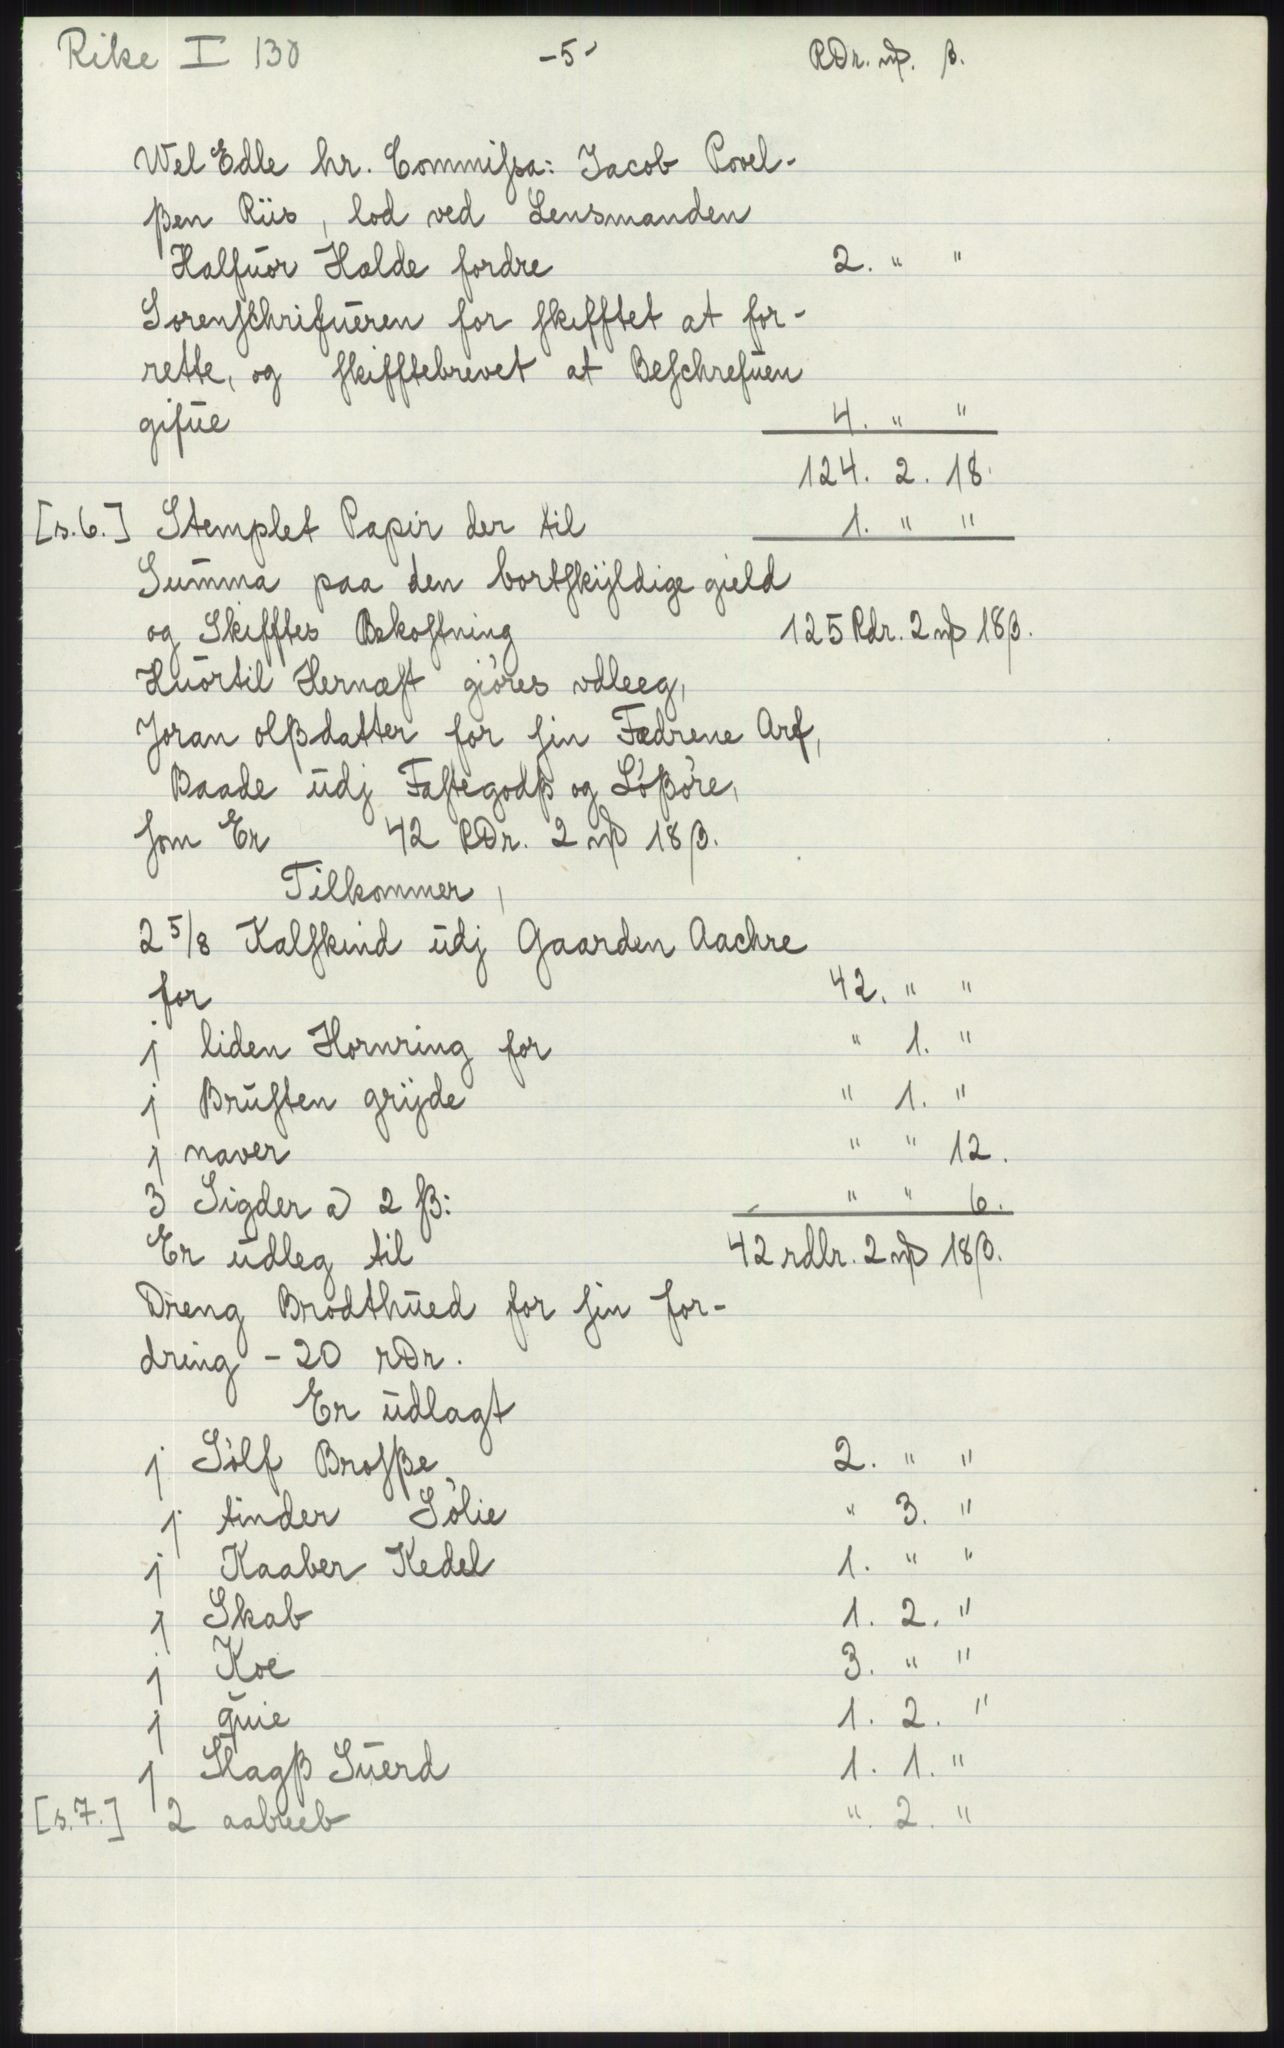 Rike I 130 -5- RDr. mß. β.
Wel Edle hr. Commißa: Jacob Povel-
ßen Riis, lod ved Lensmanden
Halfuor Halde fordre 2. " "
Sorenschrifueren for skifftet at for-
rette, og skifftebrevet at Beschrefuen
gifue 4. " "
124. 2. 18.
[s.6.] Stemplet Papir der til 1. " "
Summa paa den bortskÿldige gield
og Skifftes Bekostning 125 Rdr. 2 mß 18β.
Huortil Hernæst giøres vdleeg,
Joran olßdatter for sin Fædrene Arf,
Baade udj Fastegodß og Løßøre,
som Er 42 RDr. 2 mß 18β.
Tilkommer,
2 5/8 Kalfskind udj Gaarden Aachre
for 42. " "
j liden Hornring for " 1. "
j Brusten grÿde " 1. "
j naver " " 12.
3 Sigder a 2 ß: " " 6.
Er udleg til 42 rdlr. 2 mß 18β.
Dreng Brodthued for sin for-
dring - 20 rDr.
Er udlagt
j Sølf Broßße 2. " "
j tinder Sølie " 3. "
j Kaaber Kedel 1. " "
j Skab 1. 2. "
j Koe 3. " "
j quie 1. 2. "
j Slagß Suerd 1. 1. "
[s.7.] 2 aabreeb ". 2. "